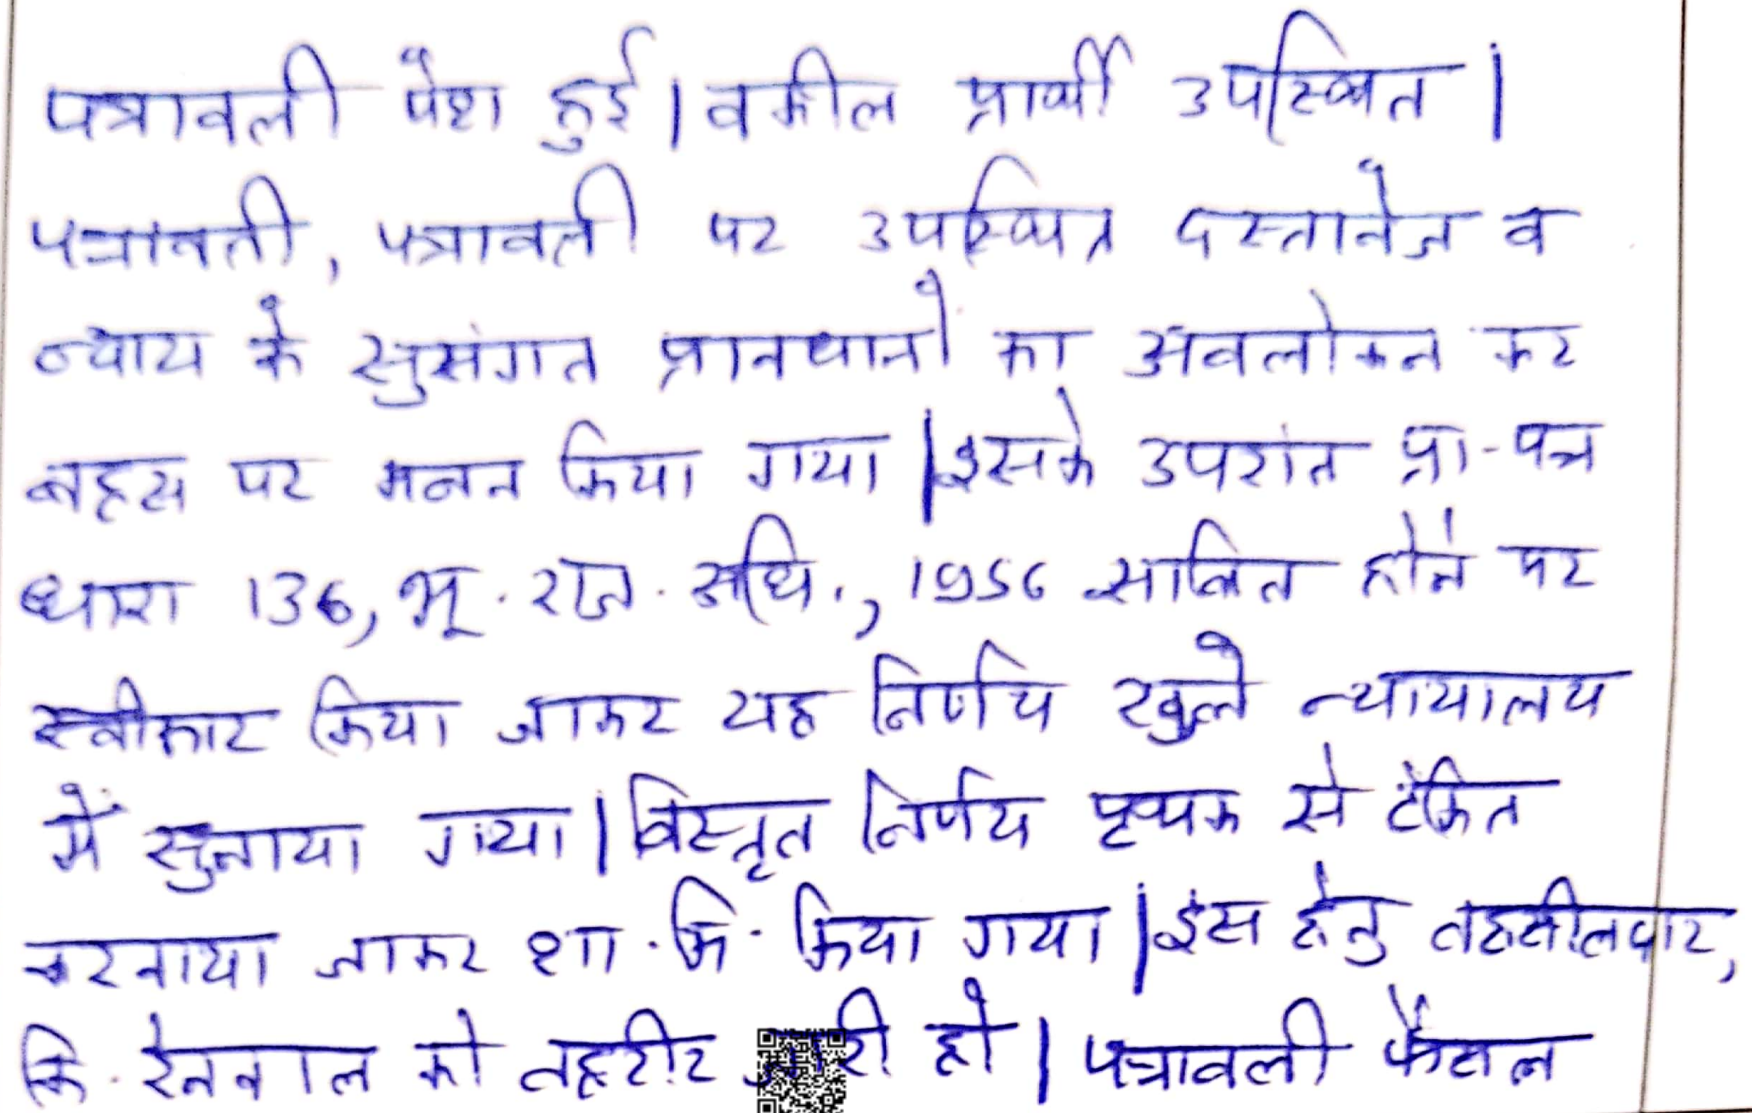 पत्रावली पेश हुई। वकील प्रार्थी उपस्थित।
पत्रावली, पत्रावली पर उपस्थित दस्तावेज व
न्याय के सुसंगत प्रावधानों का अवलोकन कर
बहस पर मनन किया गया। इसके उपरांत प्रा-पत्र
धारा 136, भू. राज. अधि., 1956 साबित होने पर
स्वीकार किया जाकर यह निर्णय खुले न्यायालय
में सुनाया गया। विस्तृत निर्णय पृथक से टंकित
करवाया जाकर शा. मि. किया गया। इस हेतु तहसीलदार,
कि. रेनवाल को तहरीर जारी हो। पत्रावली फैसल